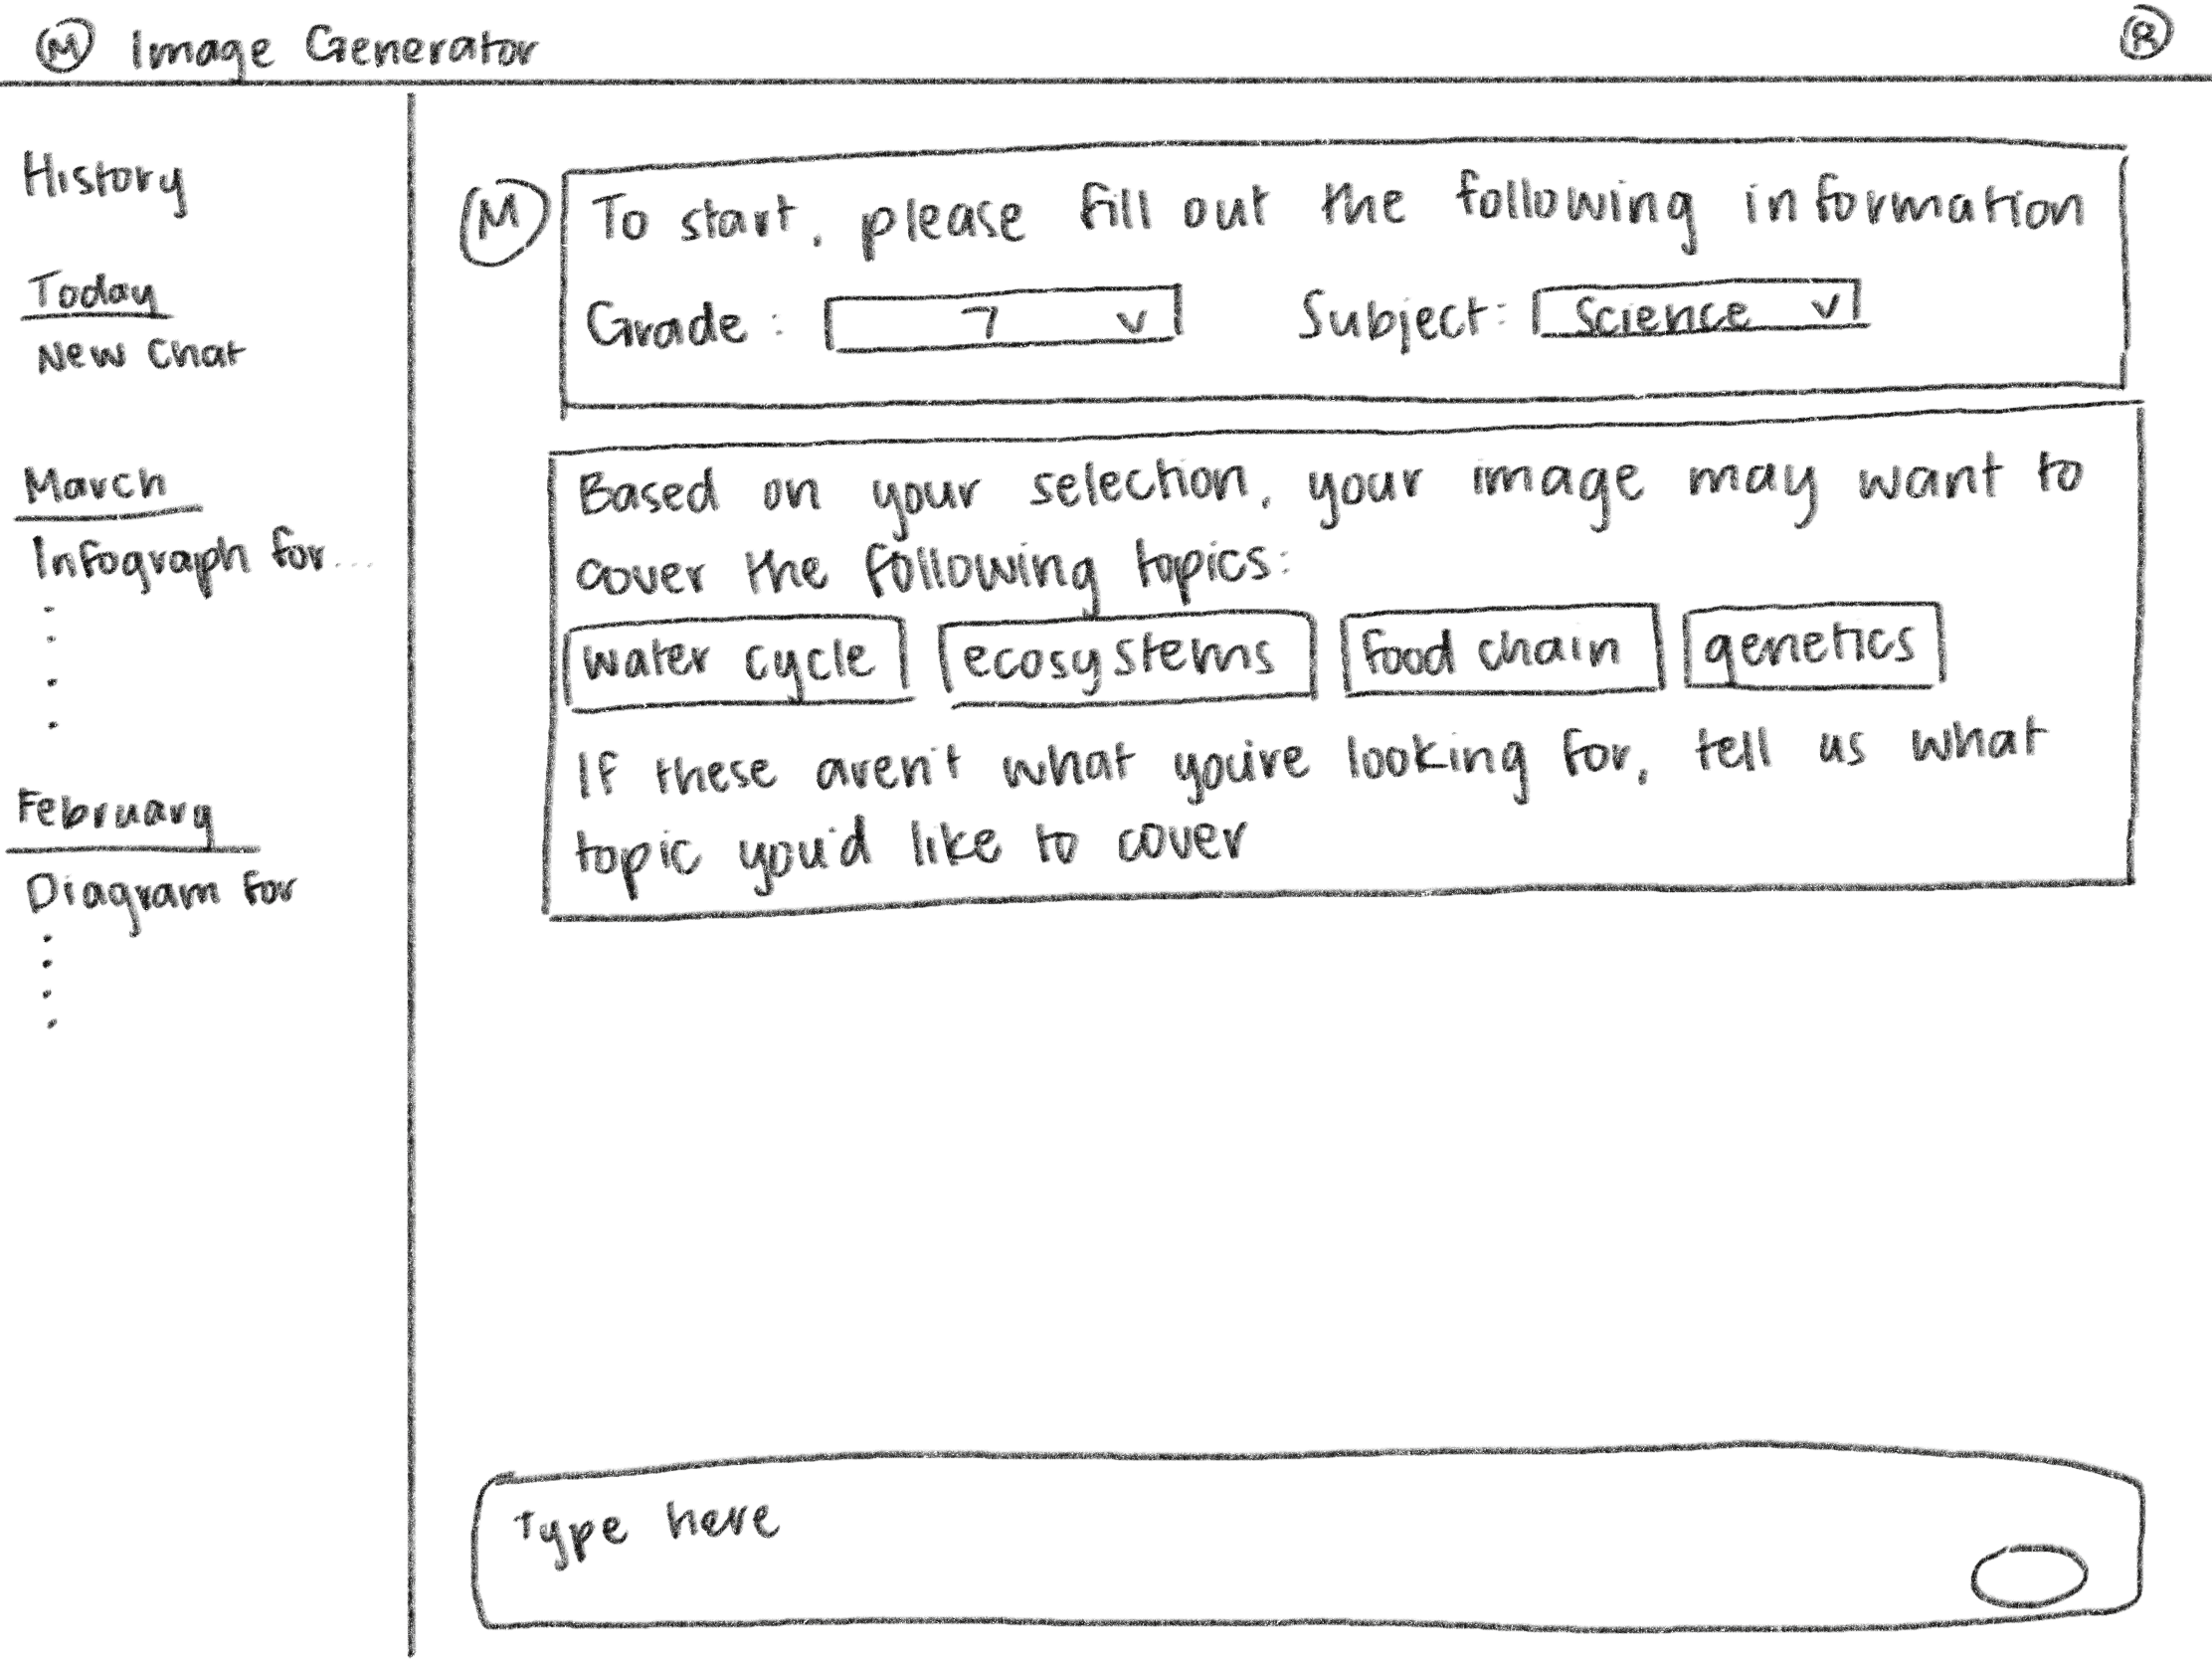 M Image Generator
R
History
Today
New Chat
March
Infograph for...
February
Diagram for
M
To start, please fill out the following information
Grade: 7 v Subject: Science v
Based on your selection, your image may want to
cover the following topics:
water cycle ecosystems food chain genetics
If these aren't what you're looking for, tell us what
topic you'd like to cover
Type here